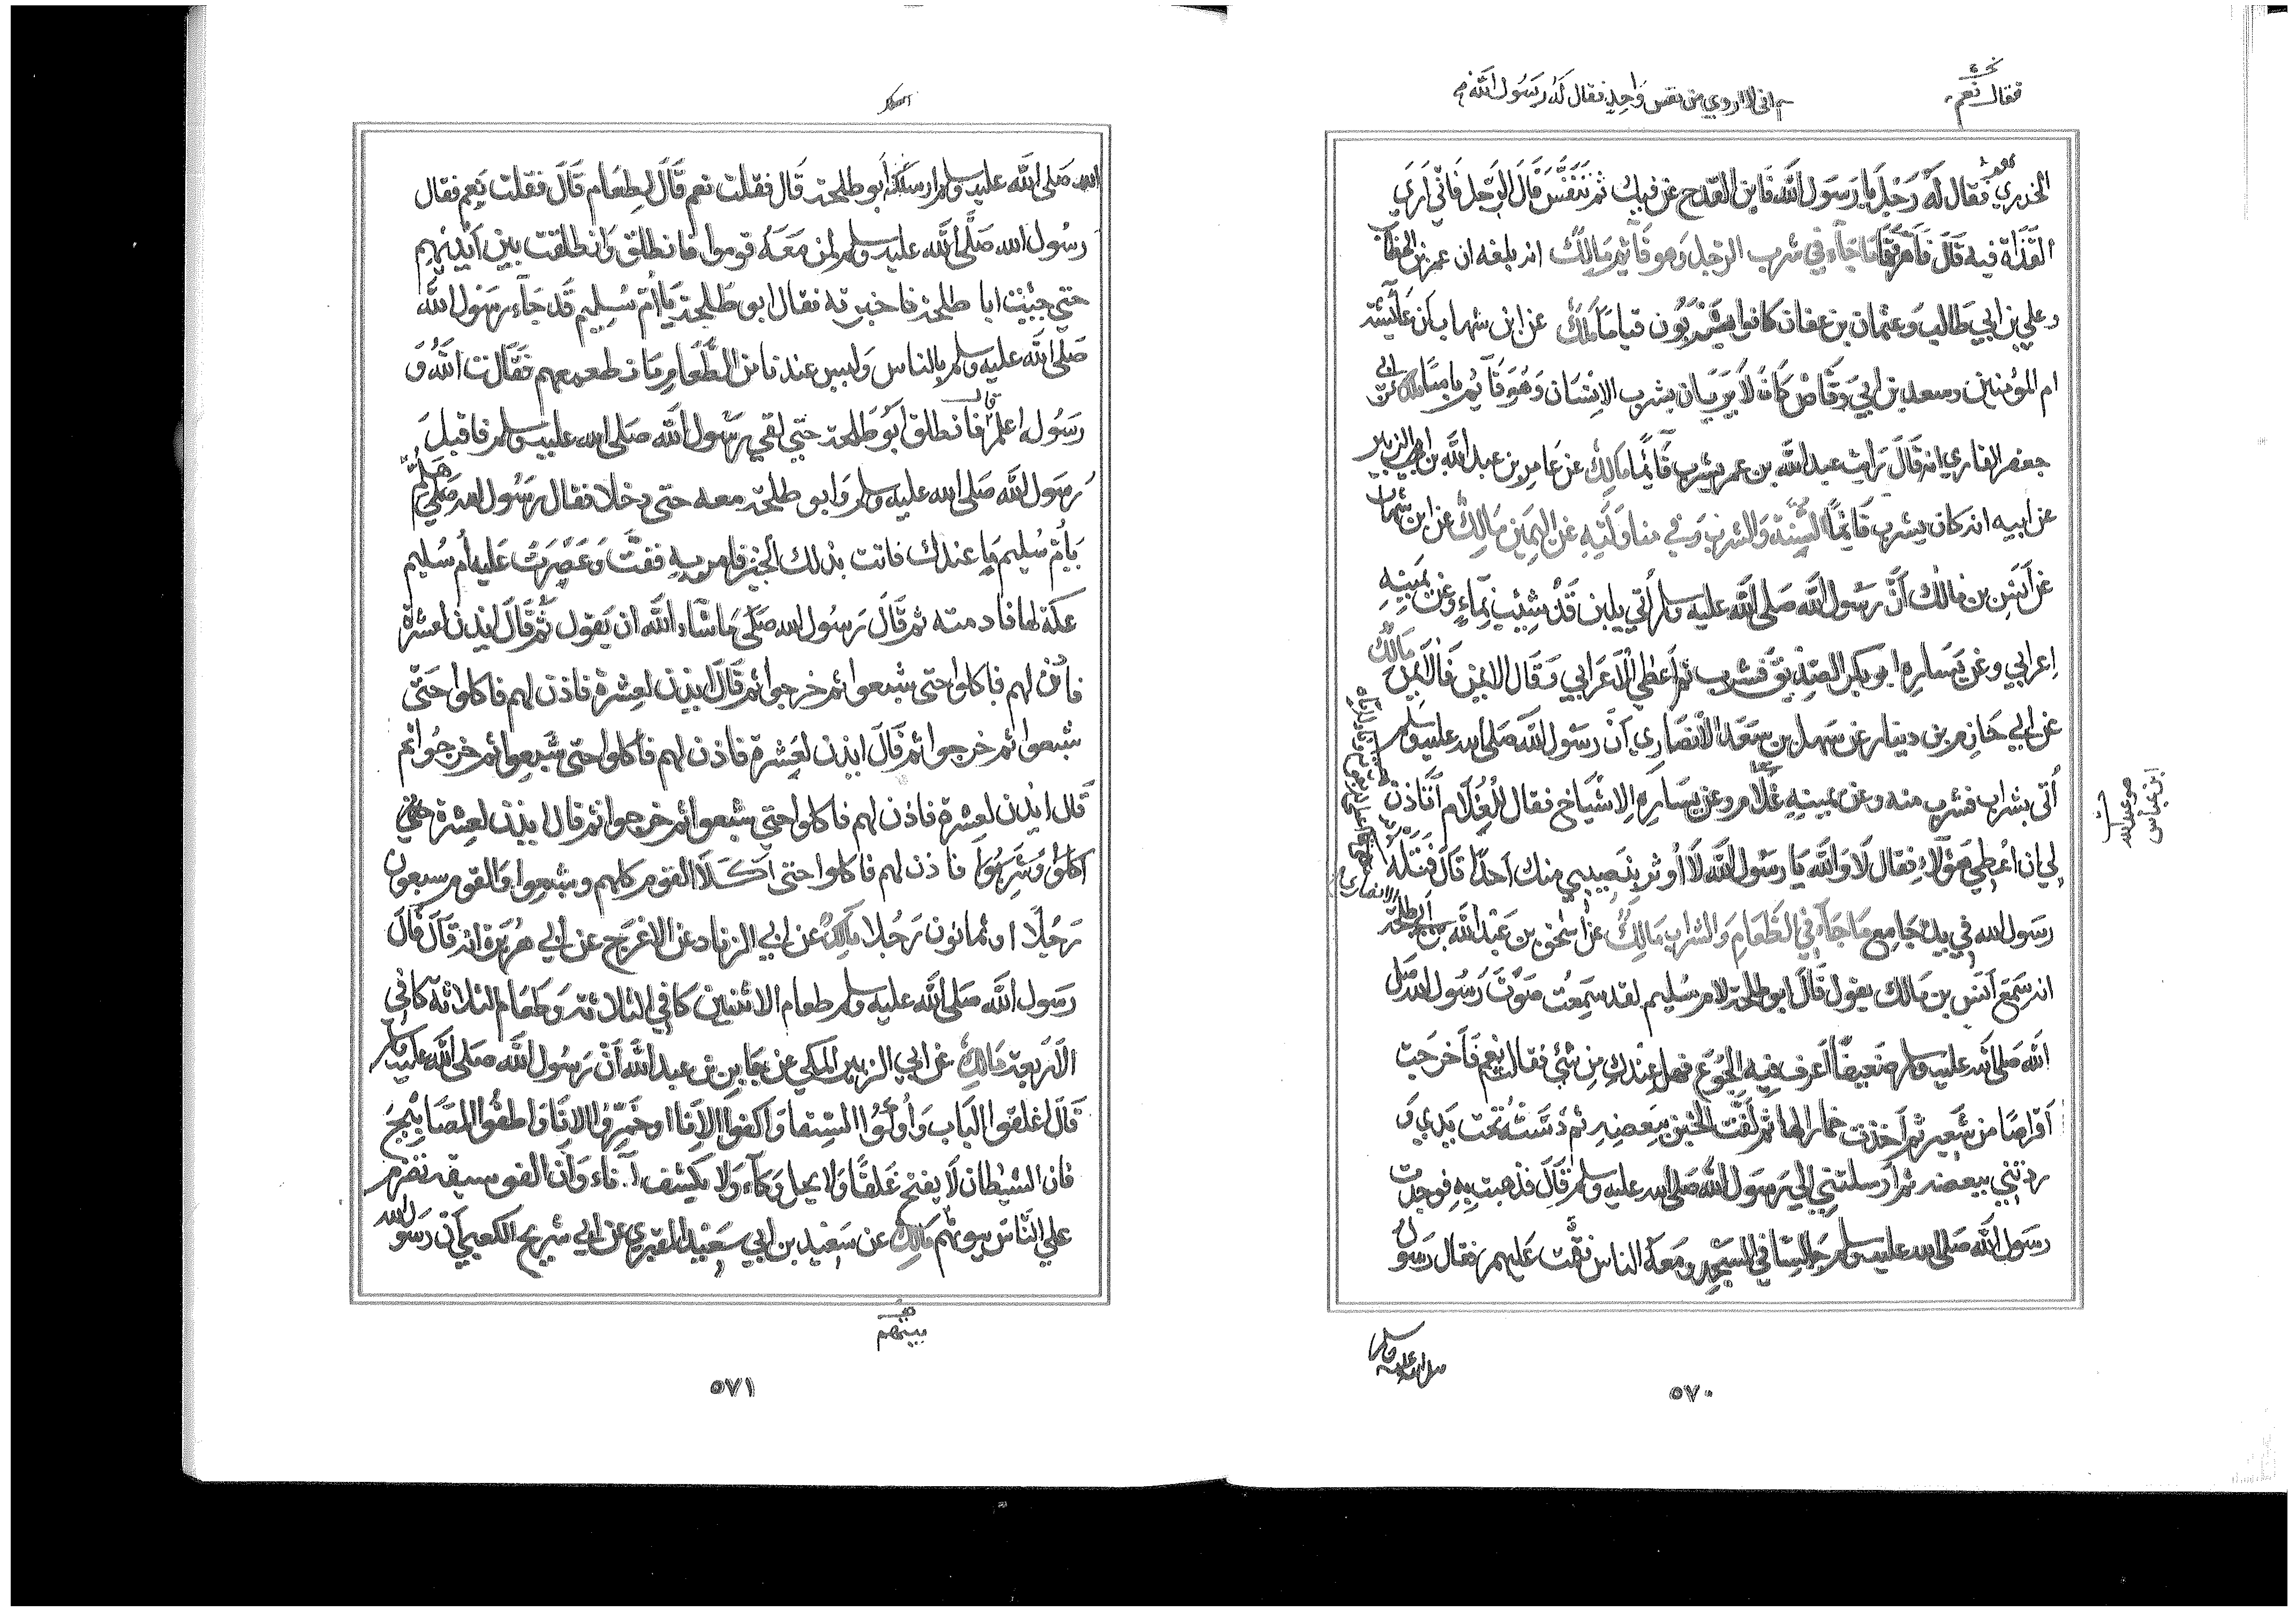 فقال نعم
اني لا اروي من نفس واحد فقال له رسول الله
الخدري نعم فقال له رجل يا رسول الله فابن القدح عن فيك ثم تنفس قال الرجل فاني اري
القذاة فيه قال فاهرقها ما جاء في شرب الرجل وهو قائم مالك انه بلغه ان عمر بن الخطاب
وعلي بن ابي طالب وعثمان بن عفان كانوا يشربون قياما مالك عن ابن شهاب ان عائشة
ام المؤمنين وسعد بن ابي وقاص كانا لا يريان بشرب الانسان وهو قائم باسا مالك عن ابي
جعفر القاري انه قال رايت عبد الله بن عمر يشرب قائما مالك عن عامر بن عبد الله بن الزبير
عن ابيه انه كان يشرب قائما السنة والشرب في مناولته عن اليمين مالك عن ابن شهاب
عن انس بن مالك ان رسول الله صلى الله عليه وسلم اتي بلبن قد شيب بماء وعن يمينه
اعرابي وعن يساره ابو بكر الصديق فشرب ثم اعطي الاعرابي وقال الايمن فالايمن مالك
عن ابي حازم بن دينار عن سهل بن سعد الانصاري ان رسول الله صلى الله عليه وسلم
اتى بشراب فشرب منه وعن يمينه غلام وعن يساره الاشياخ فقال للغلام اتاذن
لي ان اعطي هؤلاء فقال لا والله يا رسول الله لا اوثر بنصيبي منك احدا قال فتله
رسول الله في يده جامع ما جاء في الطعام والشراب مالك عن اسحق بن عبد الله بن ابي طلحة
انه سمع انس بن مالك يقول قال ابو طلحة لام سليم لقد سمعت صوت رسول الله صلى
الله صلى الله عليه وسلم ضعيفا اعرف فيه الجوع فهل عندك من شئ فقالت نعم فاخرجت
اقراصا من شعير ثم اخذت خمارا لها ثم لفت الخبز ببعضه ثم دسته تحت يدي و
ردتني ببعضه ثم ارسلتني الي رسول الله صلى الله عليه وسلم قال فذهبت به فوجدت
رسول الله صلى الله عليه وسلم جالسا في المسجد ومعه الناس فقمت عليهم فقال رسول
هو عبد الله
ابن عباس
صلى الله عليه وسلم
٥٧٠
الله صلى الله عليه وسلم ارسلك ابو طلحة قال فقلت نعم قال لطعام قال فقلت نعم فقال
رسول الله صلى الله عليه وسلم لمن معه قوموا فانطلق وانطلقت بين ايديهم
حتي جئت ابا طلحة فاخبرته فقال ابو طلحة يا ام سليم قد جاء رسول الله
صلى الله عليه وسلم بالناس وليس عندنا من الطعام ما نطعمهم فقالت الله و
رسوله اعلم قال فانطلق ابو طلحة حتي لقي رسول الله صلى الله عليه وسلم فاقبل
رسول الله صلى الله عليه وسلم وابو طلحة معه حتى دخلا فقال رسول الله صلى هلمي
يا ام سليم ما عندك فاتت بذلك الخبز فامر به ففت وعصرت عليه ام سليم
عكة لها فادمته ثم قال رسول الله صلى ما شاء الله ان يقول ثم قال ايذن لعشرة
فاذن لهم فاكلوا حتى شبعوا ثم خرجوا ثم قال ايذن لعشرة فاذن لهم فاكلوا حتى
شبعوا ثم خرجوا ثم قال ايذن لعشرة فاذن لهم فاكلوا حتى شبعوا ثم خرجوا ثم
قال ايذن لعشرة فاذن لهم فاكلوا حتي شبعوا ثم خرجوا ثم قال ايذن لعشرة حتي
اكلوا وشربوا فاذن لهم فاكلوا حتى اكل القوم كلهم وشبعوا والقوم سبعون
رجلا او ثمانون رجلا مالك عن ابي الزناد عن الاعرج عن ابي هريرة انه قال قال
رسول الله صلى الله عليه وسلم طعام الاثنين كافي الثلاثة وطعام الثلاثة كافي
الاربعة مالك عن ابي الزبير المكي عن جابر بن عبد الله ان رسول الله صلى الله عليه وسلم
قال اغلقوا الباب واوكوا السقا واكفوا الانا او خمروا الانا واطفوا المصابيح
فان الشيطان لا يفتح غلقا ولا يحل وكاء ولا يكشف اناء وان الفويسقة تضرم
علي الناس بيوتهم مالك عن سعيد بن ابي سعيد المقبري عن ابي شريح الكعبي ان رسول الله
بيتهم
٥٧١